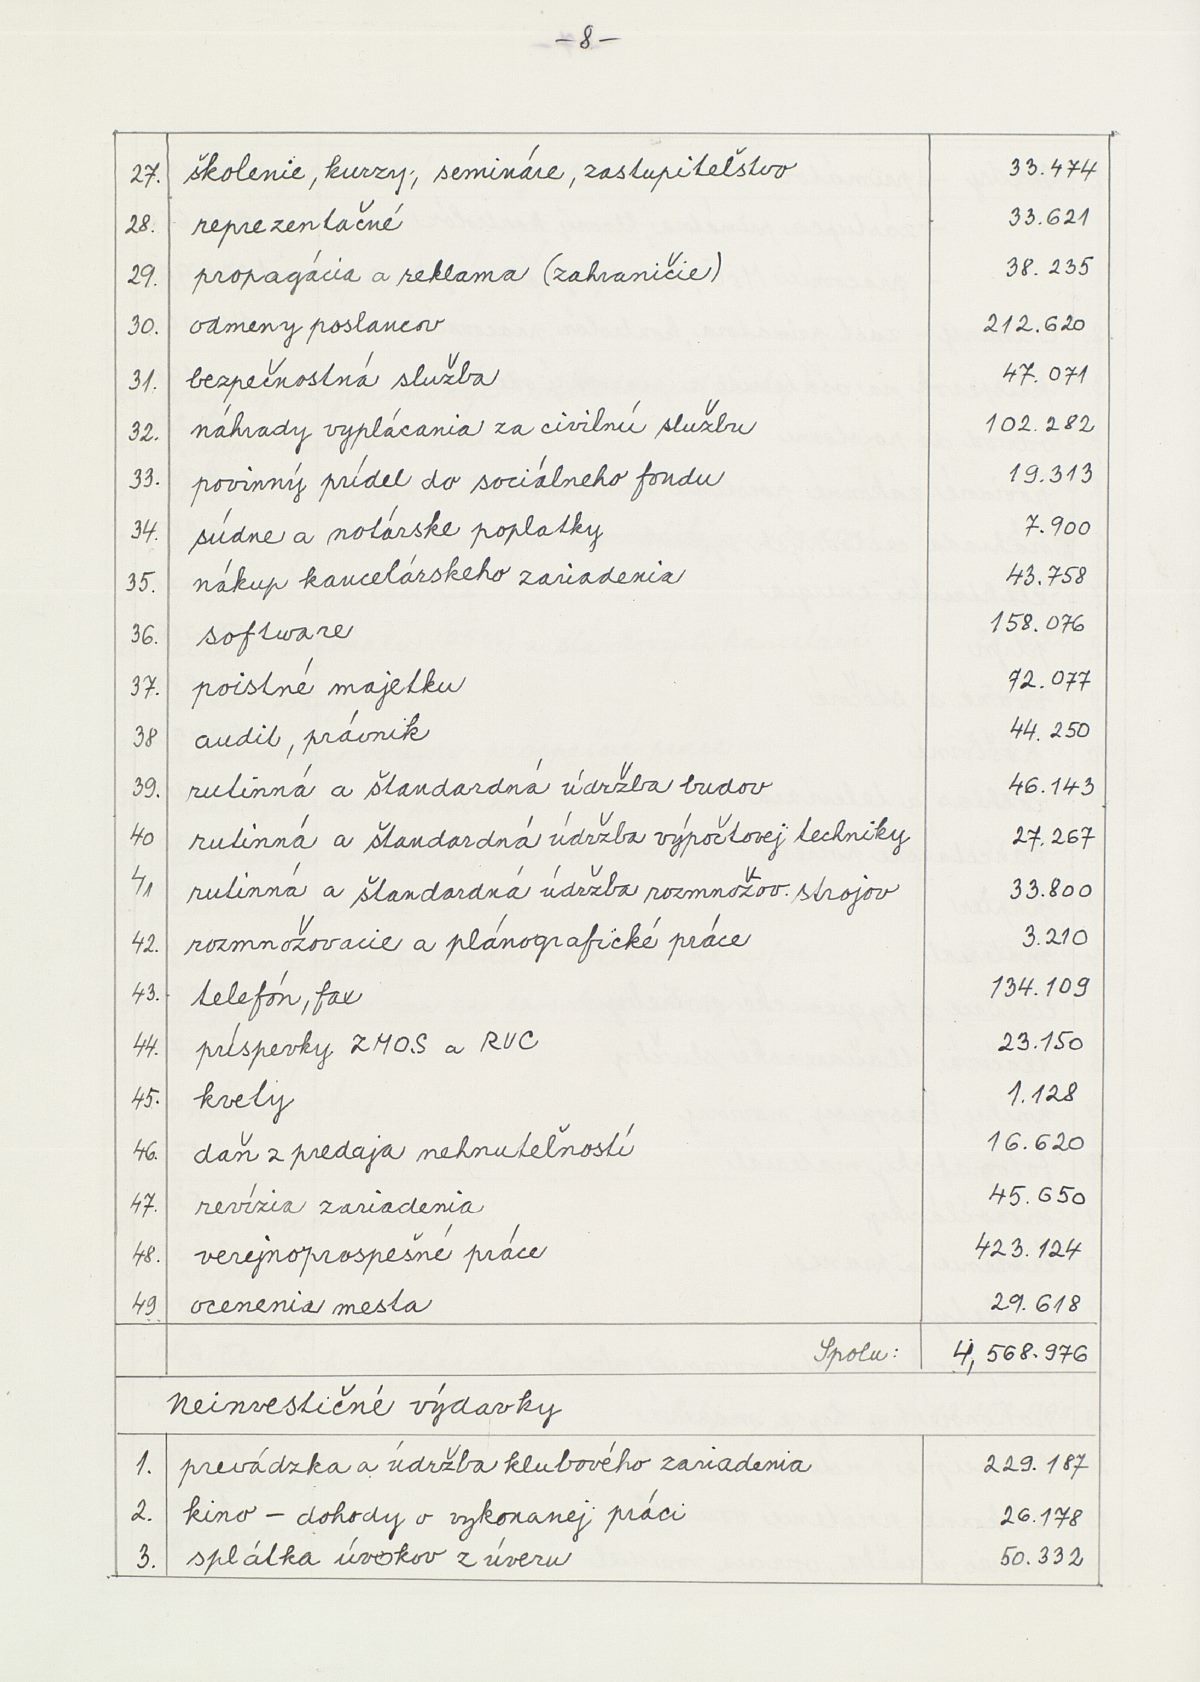 - 8 -
27. školenie, kurzy, semináre, zastupiteľstvo 33.474
28. reprezentačné 33.621
29. propagácia a reklama (zahraničie) 38.235
30. odmeny poslancov 212.620
31. bezpečnostná služba 47.071
32. náhrady vyplácania za civilnú službu 102.282
33. povinný prídel do sociálneho fondu 19.313
34. súdne a notárske poplatky 7.900
35. nákup kancelárskeho zariadenia 43.758
36. software 158.076
37. poistné majetku 72.077
38 audit, právnik 44.250
39. rutinná a štandardná údržba budov 46.143
40 rutinná a štandardná údržba výpočtovej techniky 27.267
41 rutinná a štandardná údržba rozmnožov. strojov 33.800
42. rozmnožovacie a plánografické práce 3.210
43. telefón, fax 134.109
44. príspevky ZMOS a RVC 23.150
45. kvety 1.128
46. daň z predaja nehnuteľností 16.620
47. revízia zariadenia 45.650
48. verejnoprospešné práce 423.124
49 ocenenia mesta 29.618
Spolu: 4,568.976
Neinvestičné výdavky
1. prevádzka a údržba klubového zariadenia 229.187
2. kino - dohody o vykonanej práci 26.178
3. splátka úrokov z úveru 50.332